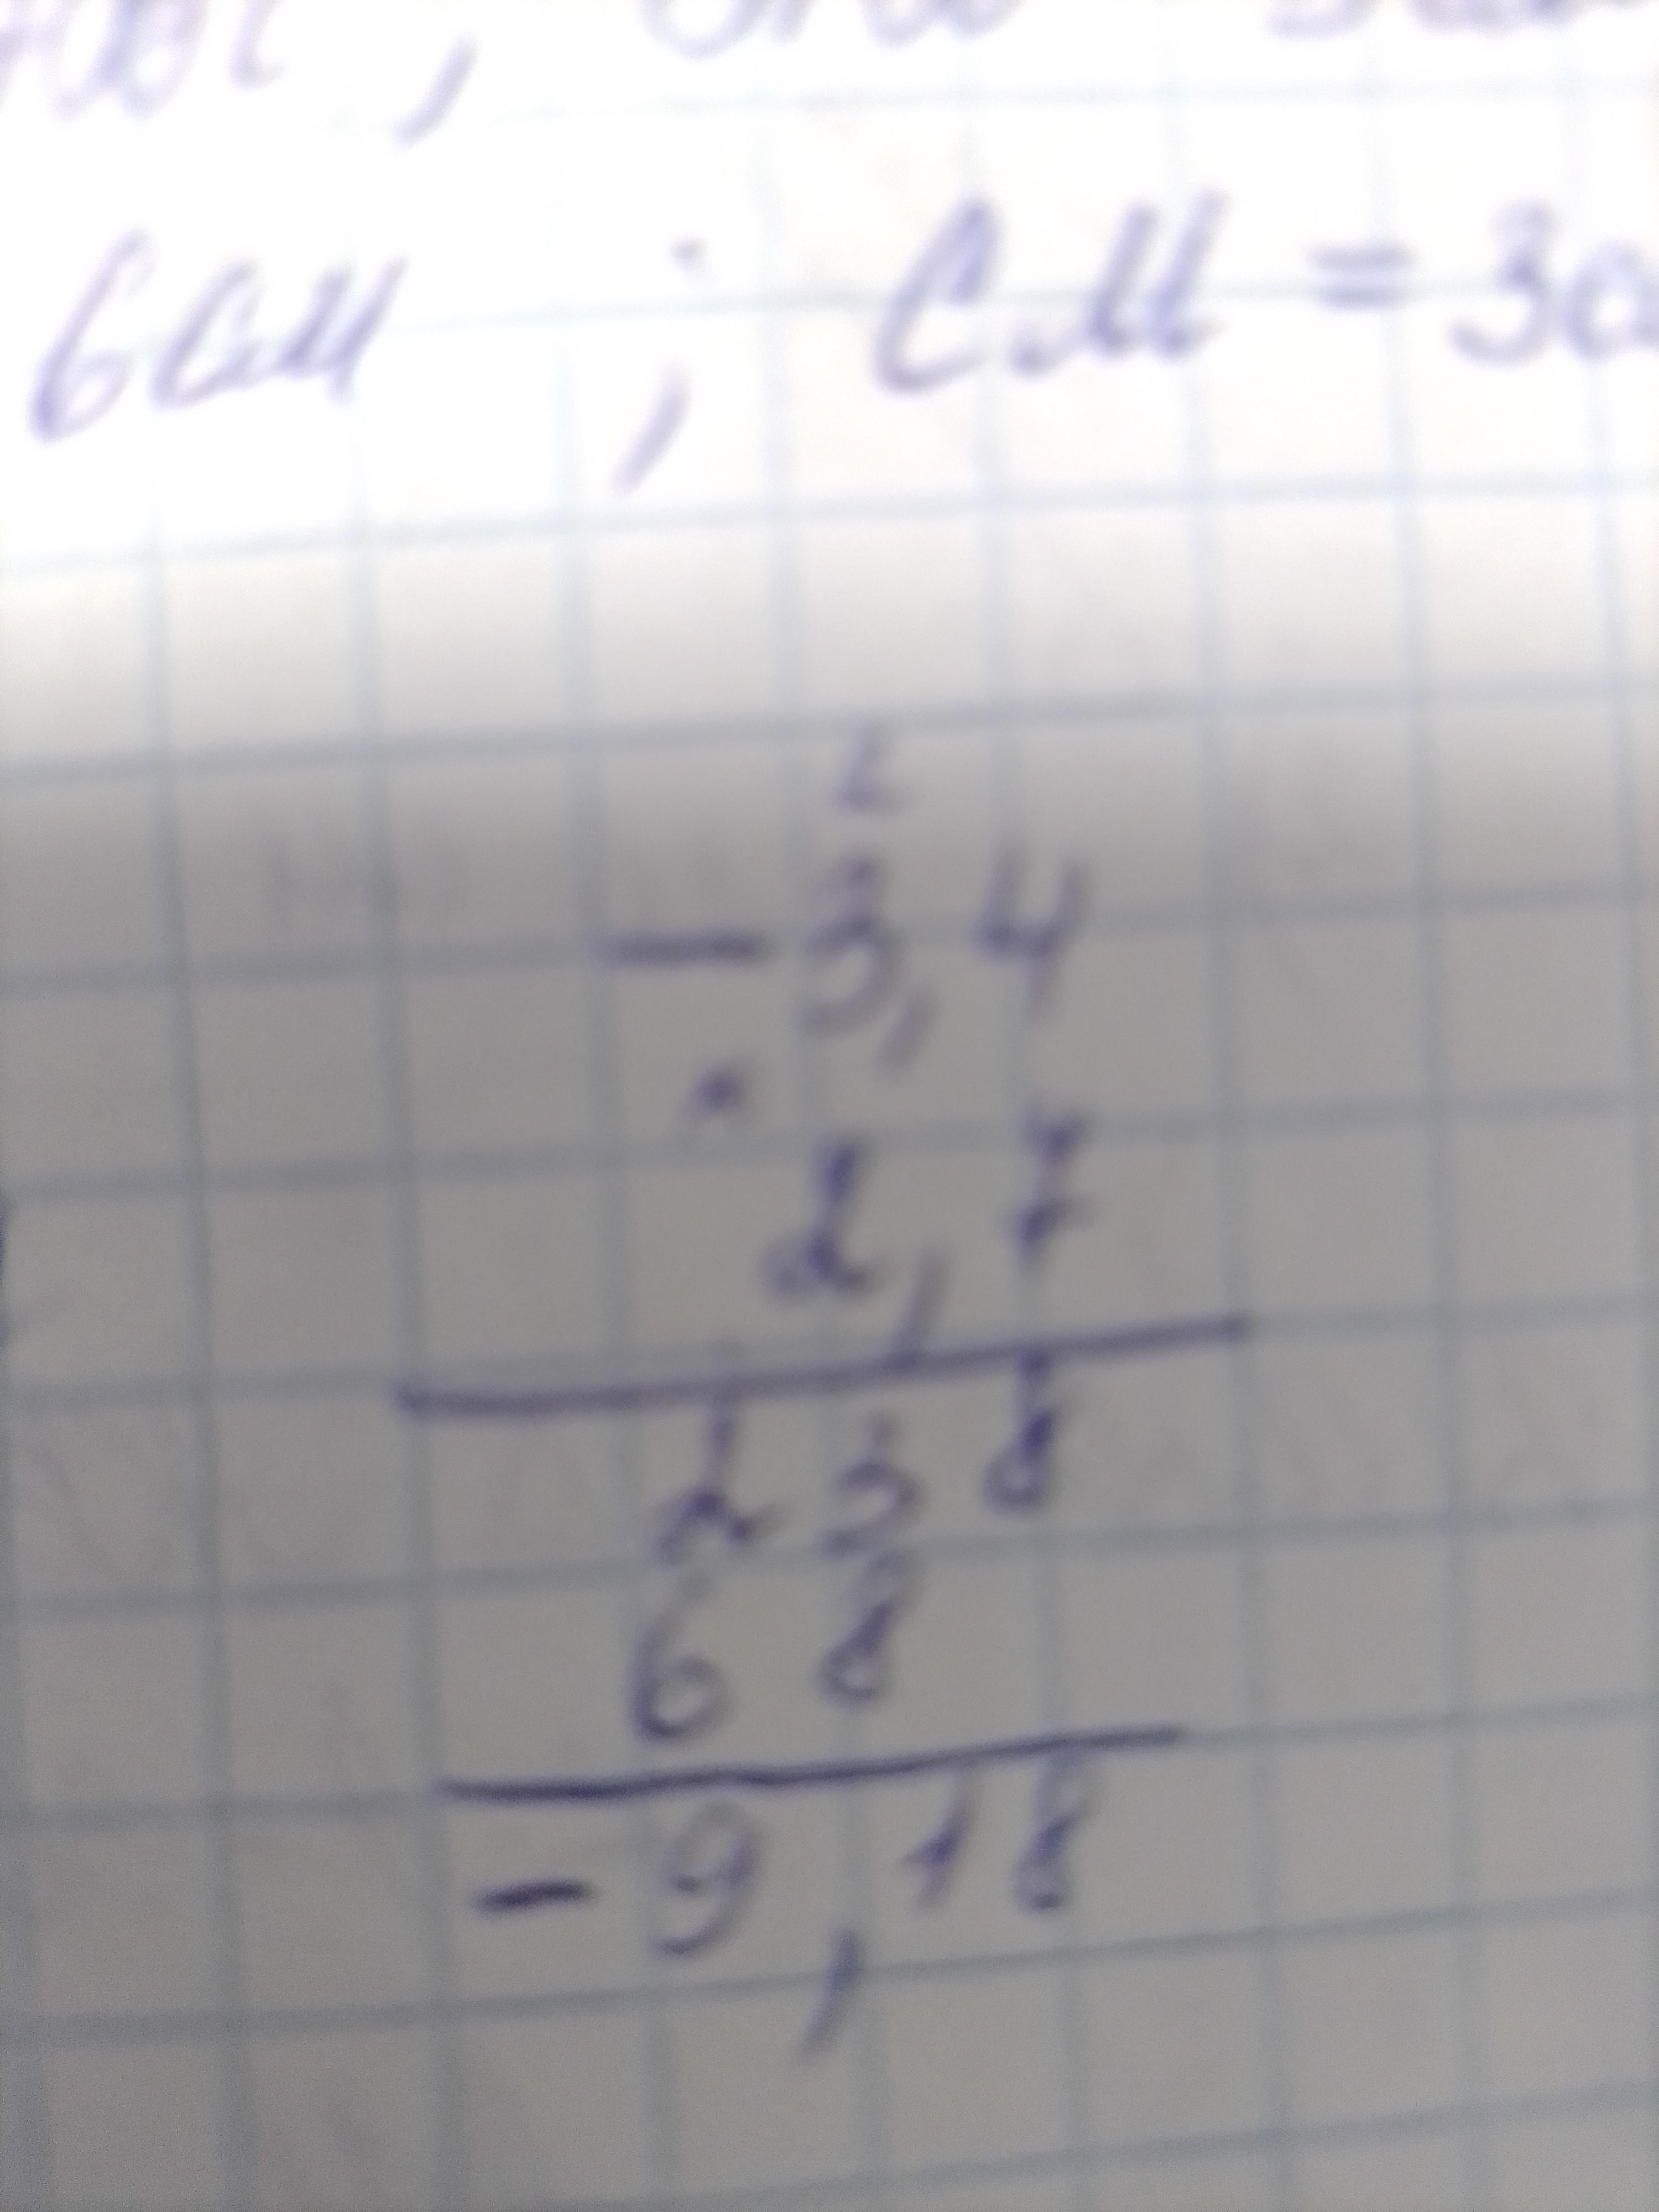 6см ; СМ = 3
2
- 3,4
·
2,7
238
68
- 9,18